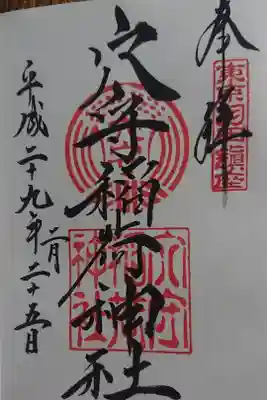 奉拝
東京羽田鎮座
穴守稲荷神社
穴守稲荷神社
平成二十九年二月二十五日